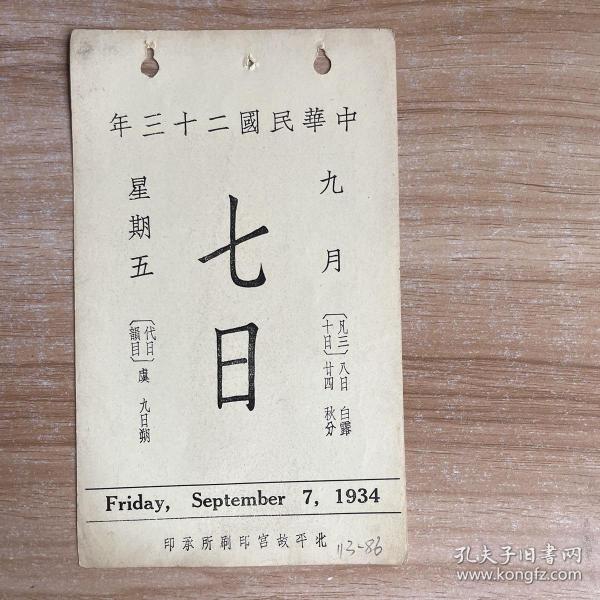 中華民國二十三年
九月
七日
星期五
〔凡三十日〕
八日 白露
廿四 秋分
〔代日韻目〕
虞 九日朔
Friday, September 7, 1934
北平故宮印刷所承印
113-86
孔夫子旧書网
www.kongfz.com